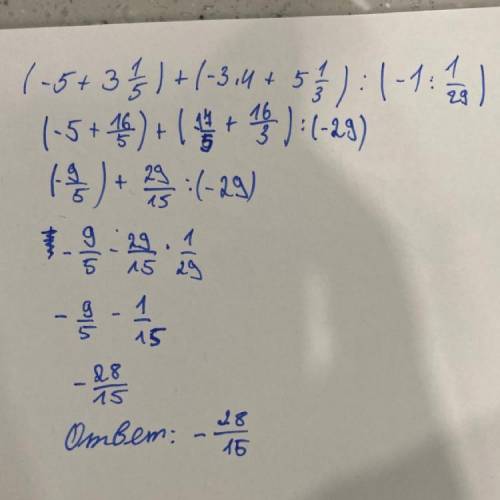 (-5 + 3 1/5) + (-3.4 + 5 1/3) : (-1 : 1/29)
(-5 + 16/5) + (17/5 + 16/3) : (-29)
(-9/5) + 29/15 : (-29)
- 9/5 - 29/15 · 1/29
- 9/5 - 1/15
- 28/15
Ответ: - 28/15